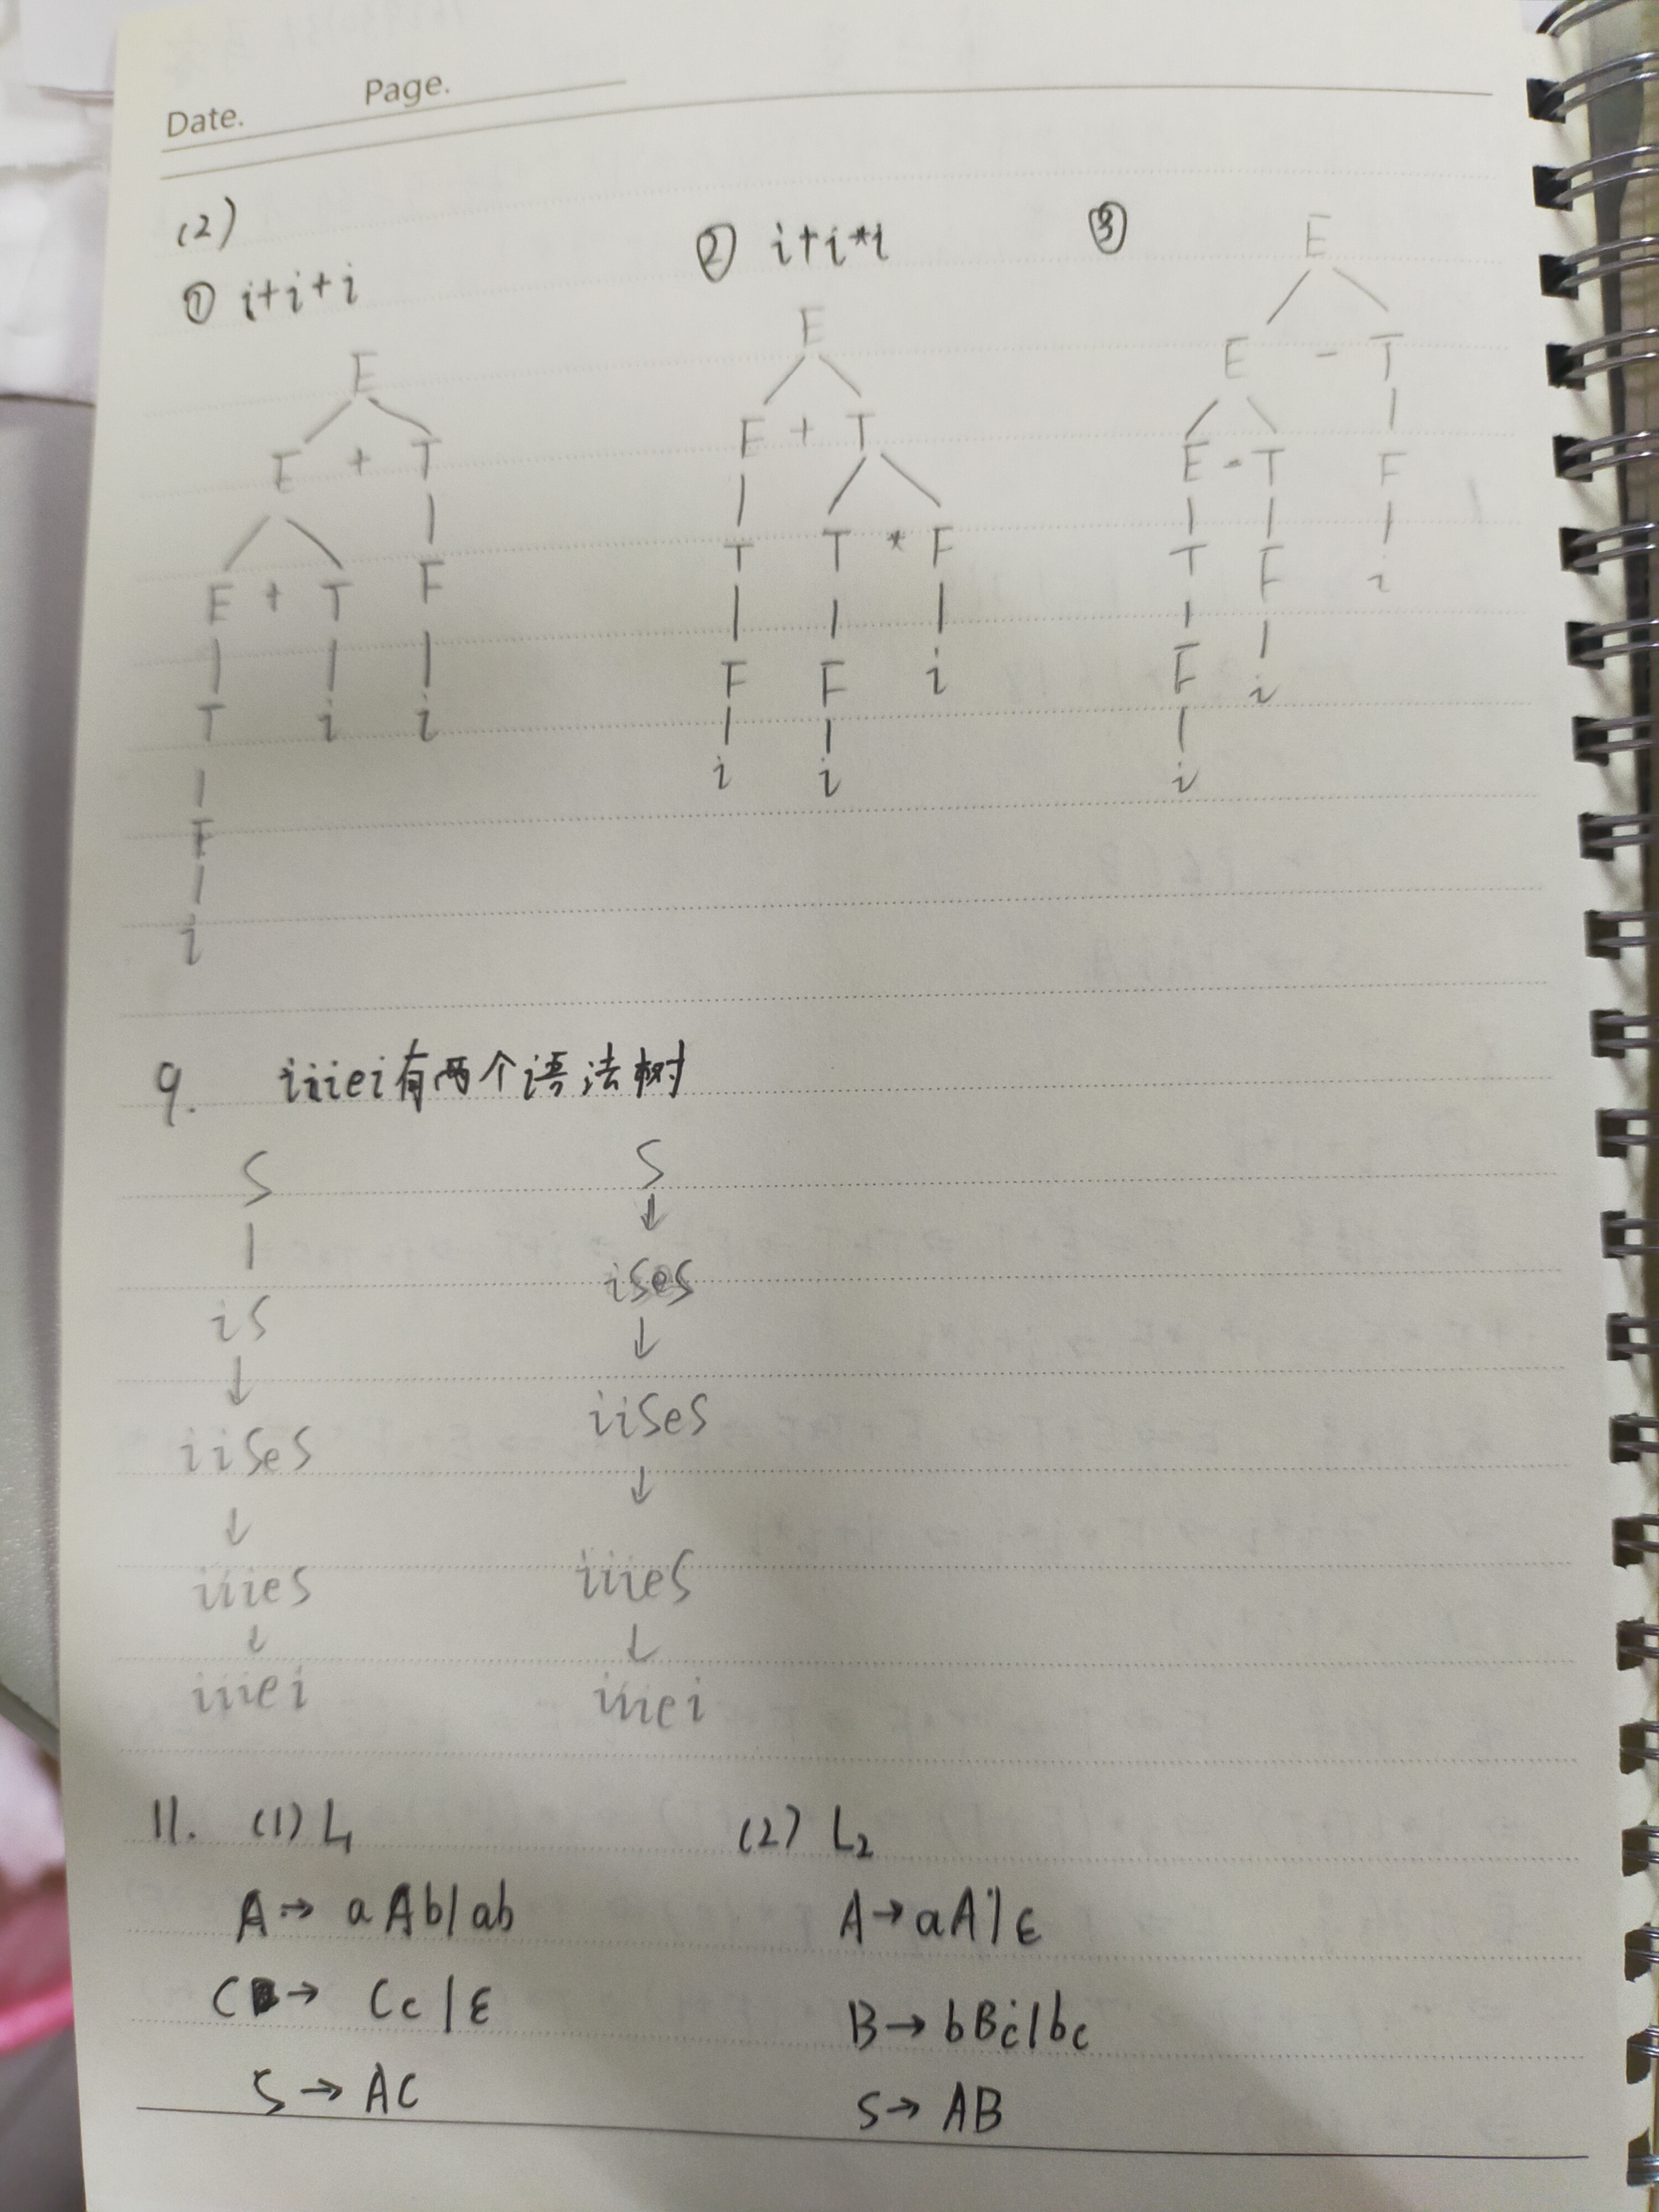 Date. Page.
(2)
① i+i+i
E
E + T
E + T F
T i i
F
i
② i+i*i
E
E + T
T T * F
F F i
i i
③
E
E - T
E - T F
T F i
F i
i
9. iiiei有两个语法树
S
iS
iiSeS
iiieS
iiiei
S
iSeS
iiSeS
iiieS
iiiei
11. (1) L₁
A → aAb|ab
C → Cc|ε
S → AC
(2) L₂
A → aA|ε
B → bBc|bc
S → AB